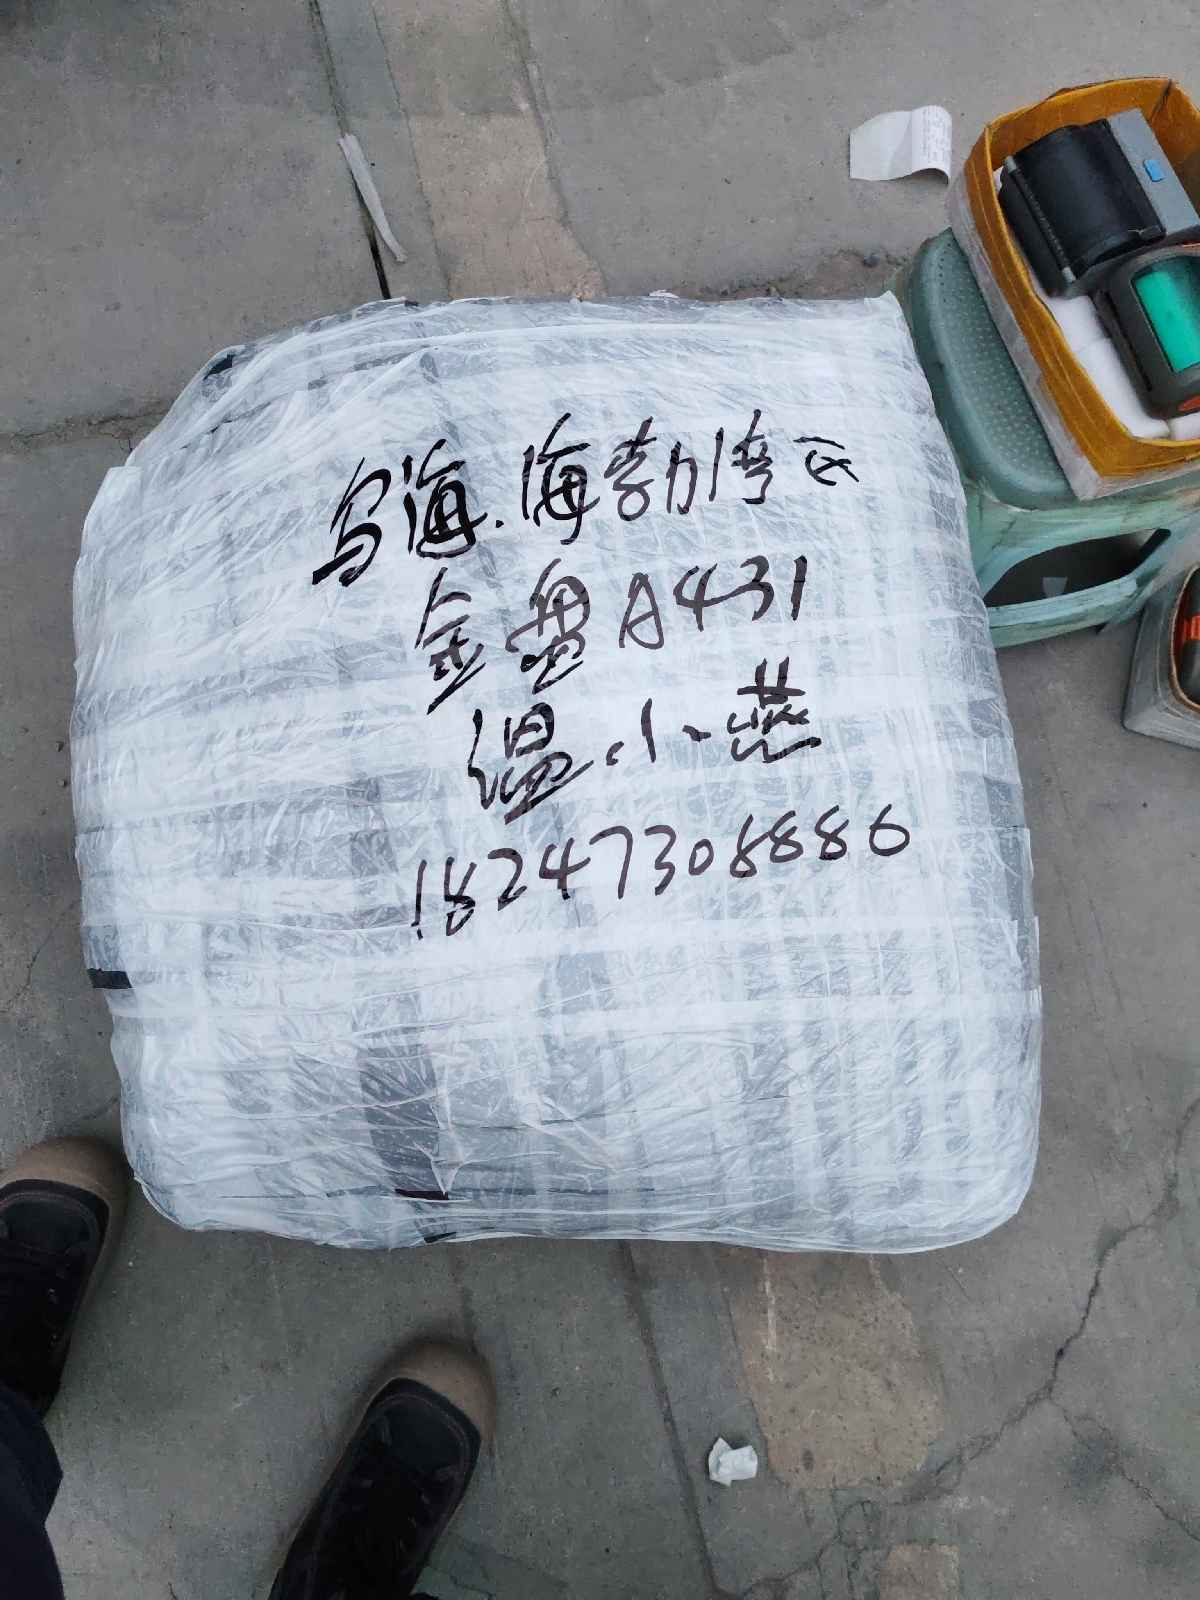 乌海.海勃湾区
金盘A431
温小燕
18247308886